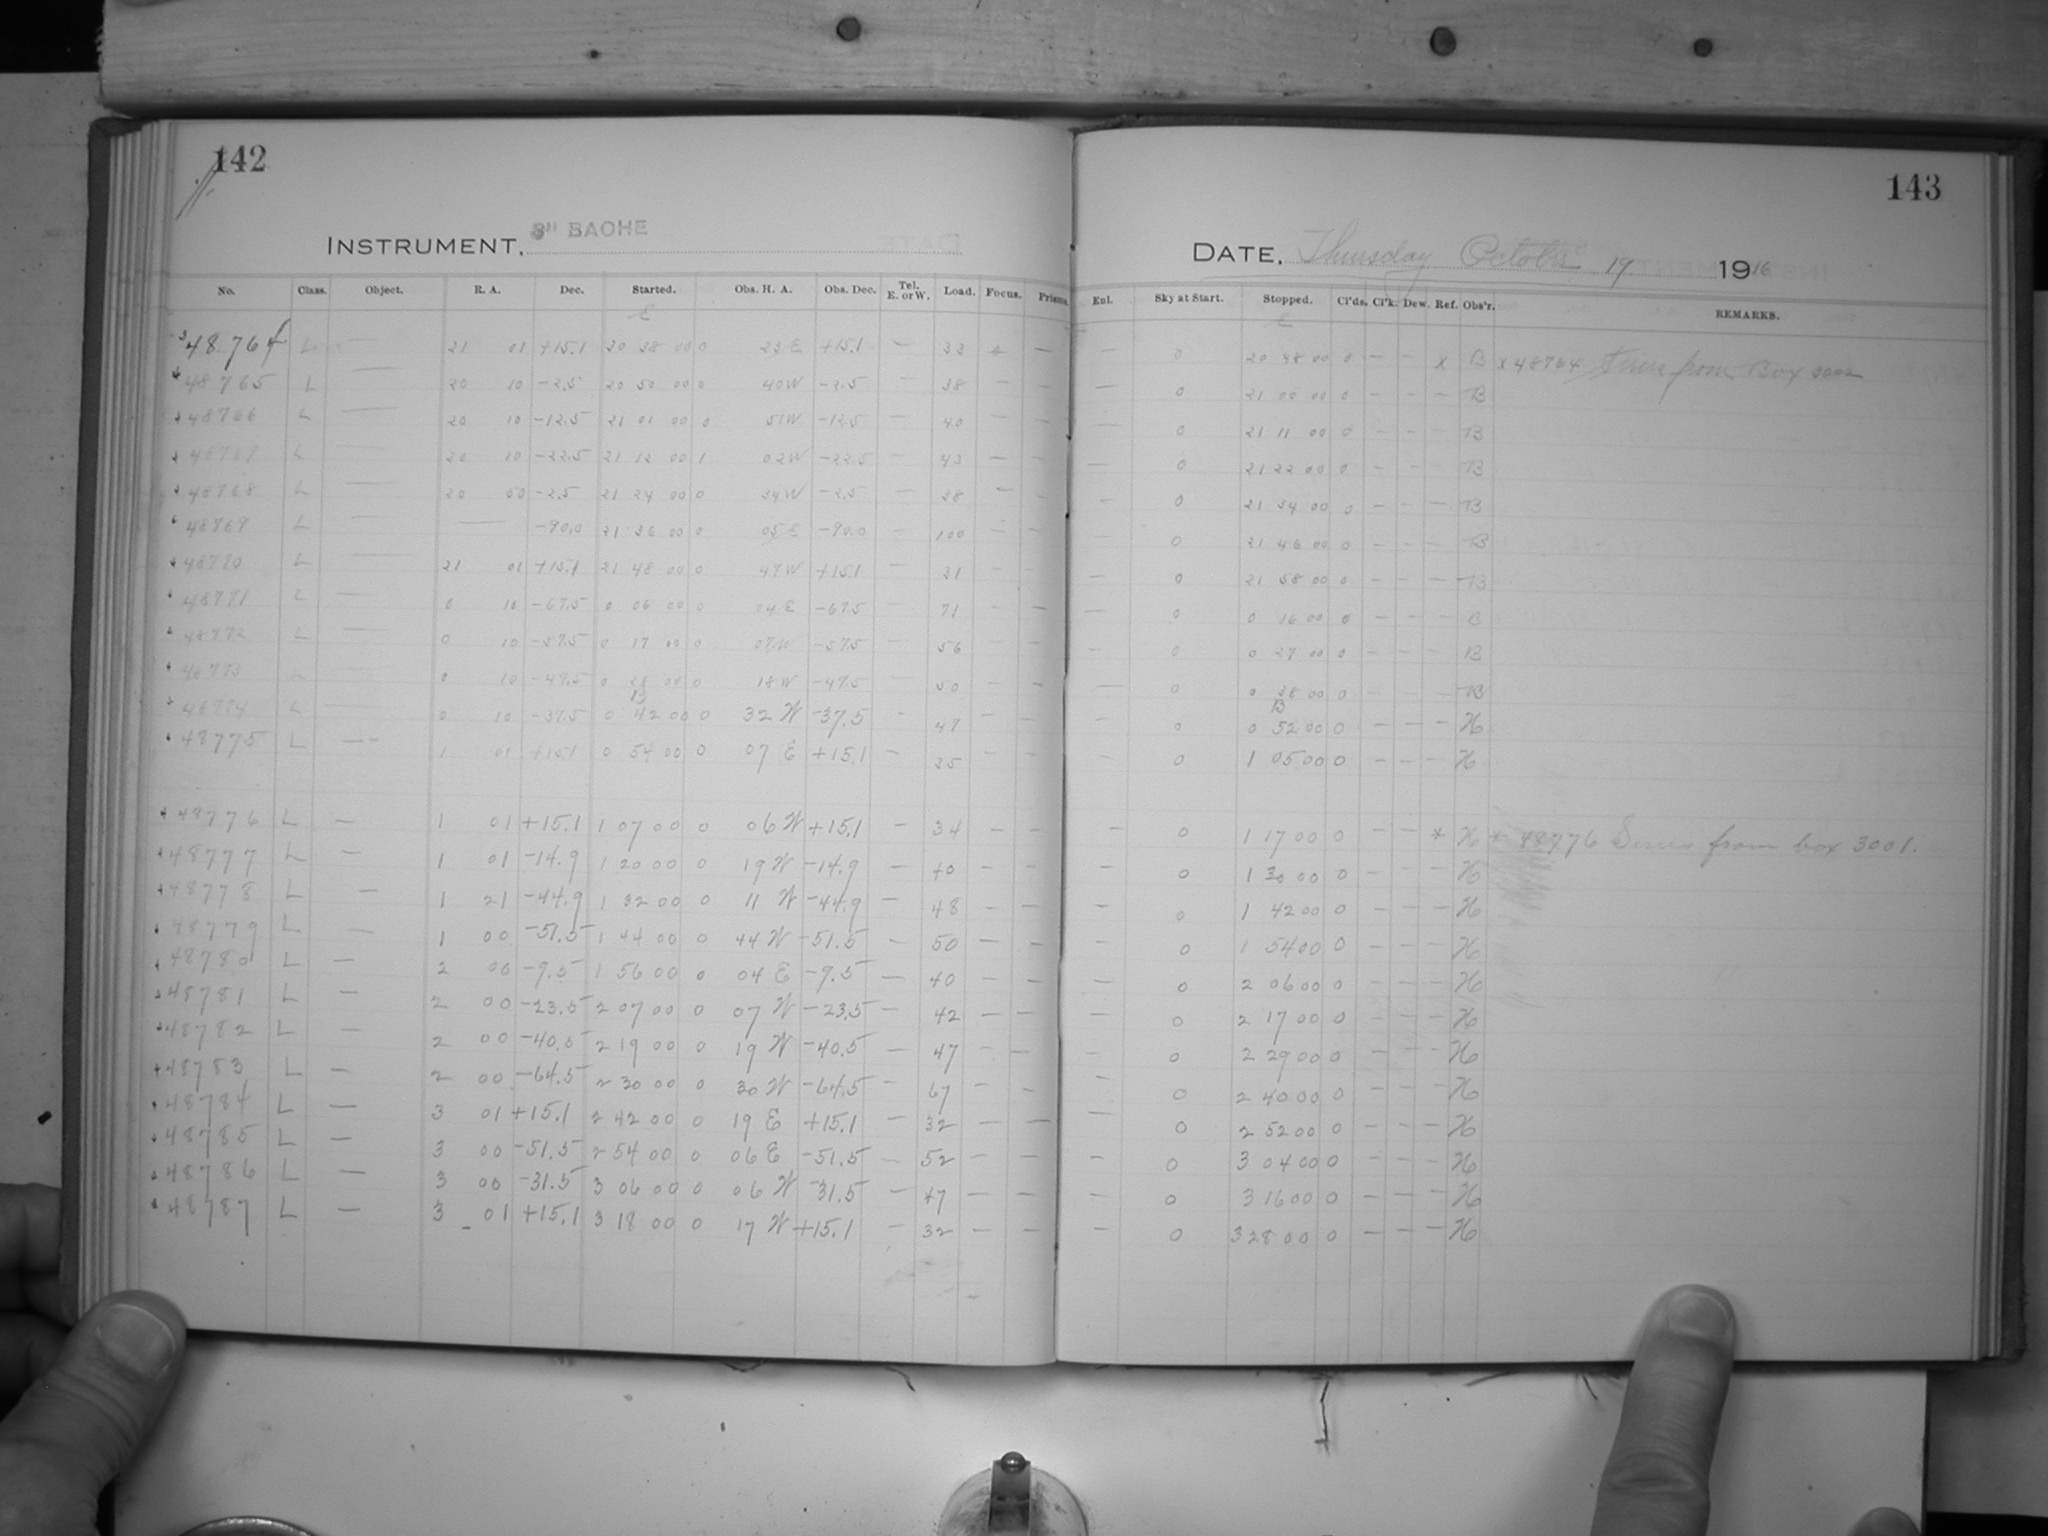 142
INSTRUMENT, 8" BACHE
No. Class. Object. R. A. Dec. Started. Obs. H. A. Obs. Dec. Tel. E. or W. Load. Focus. Prisms.
E
48764 L — 21 01 +15.1 20 38 00 0 23 E +15.1 — 33 — —
48765 L — 20 10 -2.5 20 50 00 0 40 W -2.5 — 38 — —
48766 L — 20 10 -12.5 21 01 00 0 51 W -12.5 — 40 — —
48767 L — 20 10 -22.5 21 12 00 1 02 W -22.5 — 43 — —
48768 L — 20 50 -2.5 21 24 00 0 34 W -2.5 — 38 — —
48769 L — — -90.0 21 36 00 0 05 E -90.0 — 100 — —
48770 L — 21 01 +15.1 21 48 00 0 47 W +15.1 — 31 — —
48771 L — 0 10 -67.5 0 06 00 0 04 E -67.5 — 71 — —
48772 L — 0 10 -57.5 0 17 00 0 07 W -57.5 — 56 — —
48773 L — 0 10 -47.5 0 28 00 0 18 W -47.5 — 50 — —
B
48774 L — 0 10 -37.5 0 42 00 0 32 W -37.5 — 47 — —
48775 L — 1 01 +15.1 0 54 00 0 07 E +15.1 — 35 — —
48776 L — 1 01 +15.1 1 07 00 0 06 W +15.1 — 34 — —
48777 L — 1 01 -14.9 1 20 00 0 19 W -14.9 — 40 — —
48778 L — 1 21 -44.9 1 32 00 0 11 W -44.9 — 48 — —
48779 L — 1 00 -51.5 1 44 00 0 44 W -51.5 — 50 — —
48780 L — 2 00 -9.5 1 56 00 0 04 E -9.5 — 40 — —
48781 L — 2 00 -23.5 2 07 00 0 07 W -23.5 — 42 — —
48782 L — 2 00 -40.5 2 19 00 0 19 W -40.5 — 47 — —
48783 L — 2 00 -64.5 2 30 00 0 30 W -64.5 — 67 — —
48784 L — 3 01 +15.1 2 42 00 0 19 E +15.1 — 32 — —
48785 L — 3 00 -51.5 2 54 00 0 06 E -51.5 — 52 — —
48786 L — 3 00 -31.5 3 06 00 0 06 W -31.5 — 47 — —
48787 L — 3 01 +15.1 3 18 00 0 17 W +15.1 — 32 — —
143
DATE, Thursday October 19 1916
Enl. Sky at Start. Stopped. Cl'ds. Cl'k. Dew. Ref. Obs'r. REMARKS.
E
— 0 20 48 00 0 — — x B x 48764 Series from Box 3002
— 0 21 00 00 0 — — — B
0 21 11 00 0 — — — B
— 0 21 22 00 0 — — — B
— 0 21 34 00 0 — — — B
— 0 21 46 00 0 — — — B
— 0 21 58 00 0 — — — B
— 0 0 16 00 0 — — — B
— 0 0 27 00 0 — — — B
— 0 0 38 00 0 — — — B
B
— 0 0 52 00 0 — — — H
— 0 1 05 00 0 — — — H
— 0 1 17 00 0 — — * H * 48776 Series from box 3001.
— 0 1 30 00 0 — — — H
— 0 1 42 00 0 — — — H
— 0 1 54 00 0 — — — H
— 0 2 06 00 0 — — — H
— 0 2 17 00 0 — — — H
— 0 2 29 00 0 — — — H
— 0 2 40 00 0 — — — H
— 0 2 52 00 0 — — — H
— 0 3 04 00 0 — — — H
— 0 3 16 00 0 — — — H
— 0 3 28 00 0 — — — H